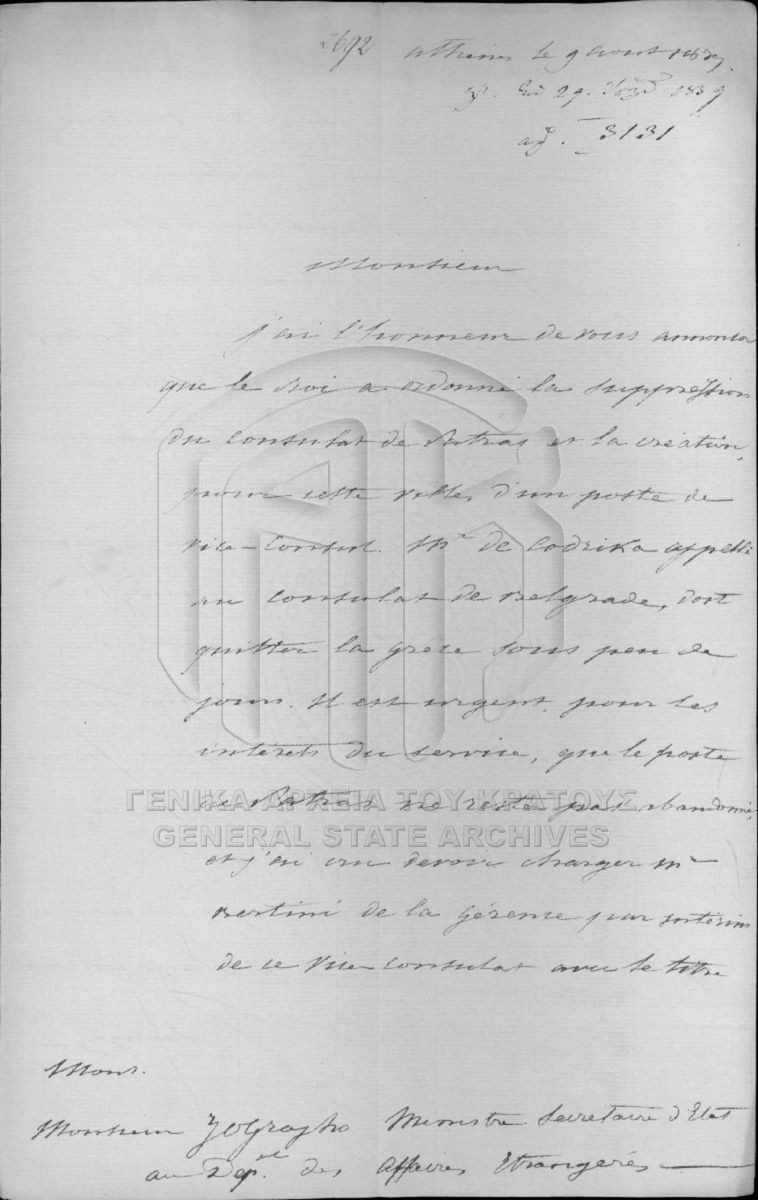 2692 Athènes le 9 aout 1839.
29. 1839
3131
Monsieur
J'ai l'honneur de vous annoncer
que le Roi a ordonné la suppression
du Consulat de Patras et la création,
pour cette ville, d'un poste de
Vice-Consul. Mr de Codrika appellé
au Consulat de Belgrade, doit
quitter la Grèce sous peu de
jours. Il est urgent, pour les
intérêts du service, que le poste
de Patras ne reste pas abandonné,
et j'ai cru devoir charger Mr
Bertini de la Gérence par interim
de ce Vice-consulat avec le titre
ΓΕΝΙΚΑ ΑΡΧΕΙΑ ΤΟΥ ΚΡΑΤΟΥΣ
GENERAL STATE ARCHIVES
Mons.
Monsieur Zographo Ministre Secretaire d'Etat
au Dep.et des Affaires Etrangeres